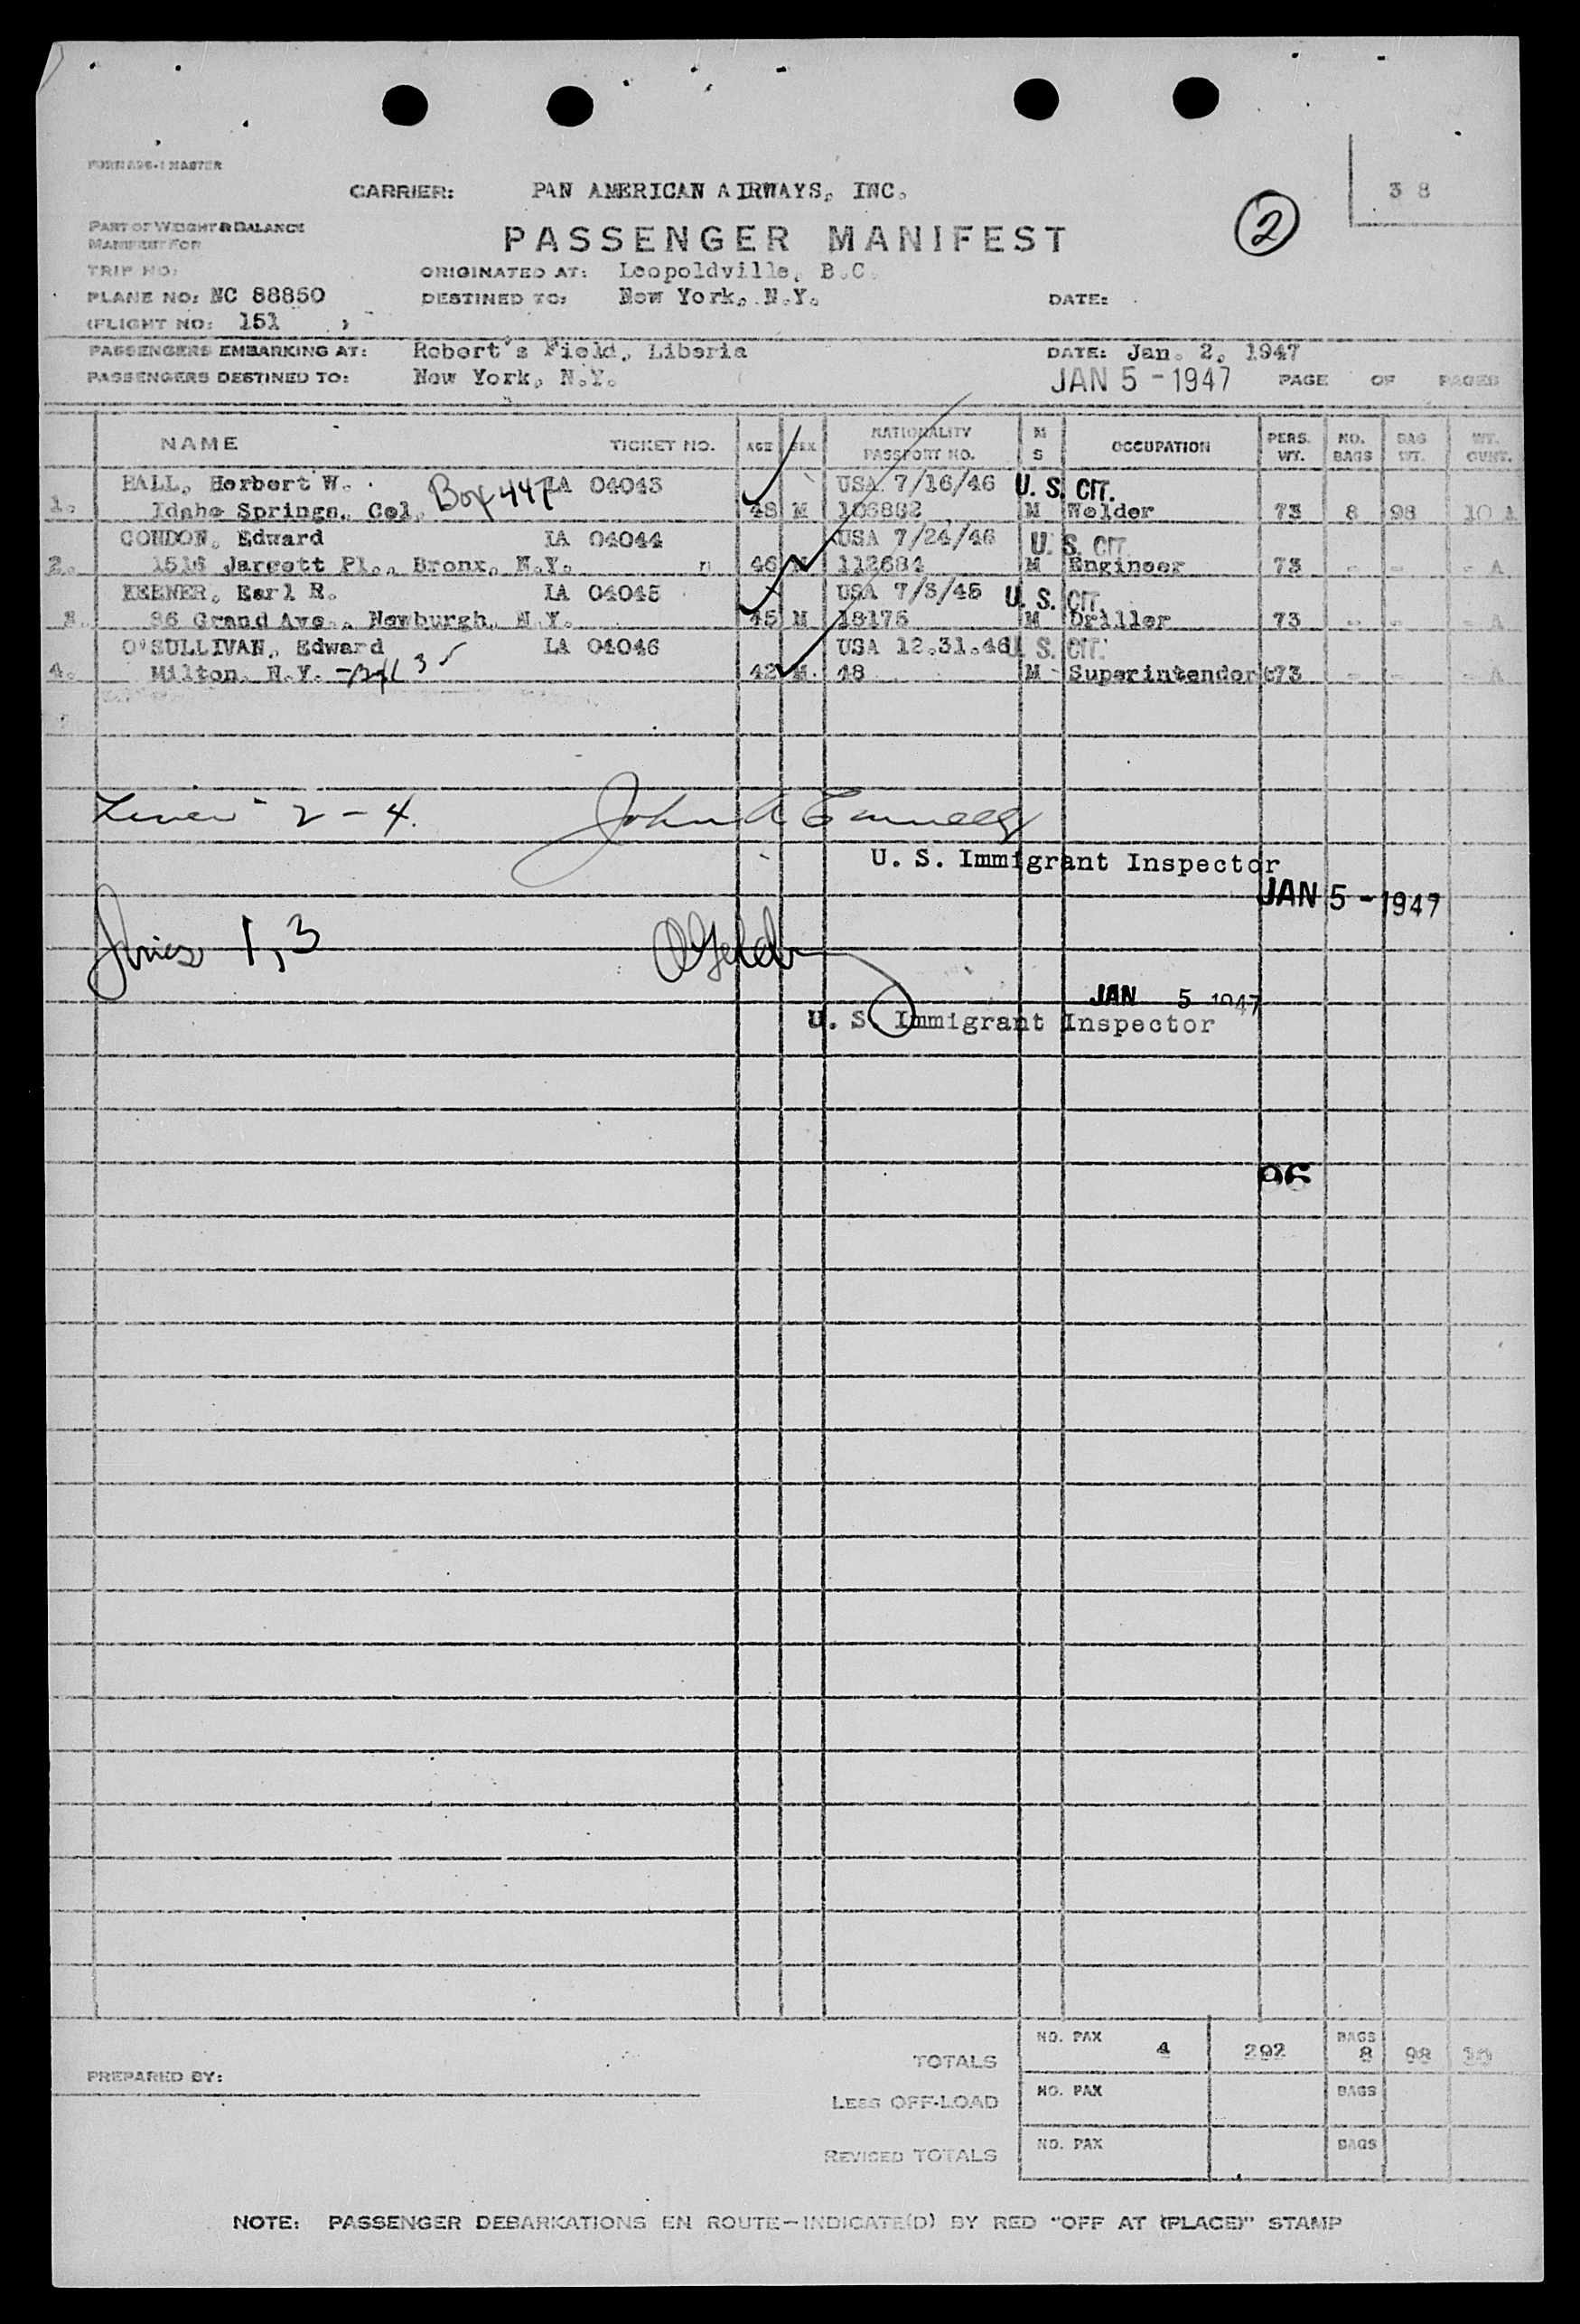 FORM 825-1 MASTER
CARRIER: PAN AMERICAN AIRWAYS, INC. 38
PART OF WEIGHT & BALANCE
MANIFEST FOR
PASSENGER MANIFEST 2
TRIP NO: ORIGINATED AT: Leopoldville, B.C.
PLANE NO: NC 88850 DESTINED TO: New York, N.Y. DATE:
(FLIGHT NO: 151 )
PASSENGERS EMBARKING AT: Robert's Field, Liberia DATE: Jan. 2, 1947
PASSENGERS DESTINED TO: New York, N.Y. JAN 5 - 1947 PAGE OF PAGES
NAME TICKET NO. AGE SEX NATIONALITY PASSPORT NO. M S OCCUPATION PERS. WT. NO. BAGS BAG WT. WT. OVNT.
Herbert W. Box 447 LA 04043 USA 7/16/46 U. S. CIT.
1. Idaho Springs, Col. 48 M M Welder 73 8 98 10 A
CONDON, Edward LA 04044 USA 7/24/46 U. S. CIT.
2. 1516 Jarrett Pl., Bronx, N.Y. 46 M 112684 M Engineer 73 - - - A
Earl R. LA 04045 USA U. S. CIT.
3. Grand Ave., Newburgh, N.Y. 45 M 18175 M Driller 73 - - - A
O'SULLIVAN, Edward LA 04046 USA 12.31.46 U. S. CIT.
4. Milton, N.Y. 42 M 48 M Superintendent 73 - - - A
2 - 4. John A
U. S. Immigrant Inspector
JAN 5 - 1947
1, 3
JAN 5 1947
U. S. Immigrant Inspector
TOTALS NO. PAX 4 292 BAGS 8 98 10
PREPARED BY:
LESS OFF-LOAD NO. PAX BAGS
REVISED TOTALS NO. PAX BAGS
NOTE: PASSENGER DEBARKATIONS EN ROUTE—INDICATE(D) BY RED "OFF AT (PLACE)" STAMP